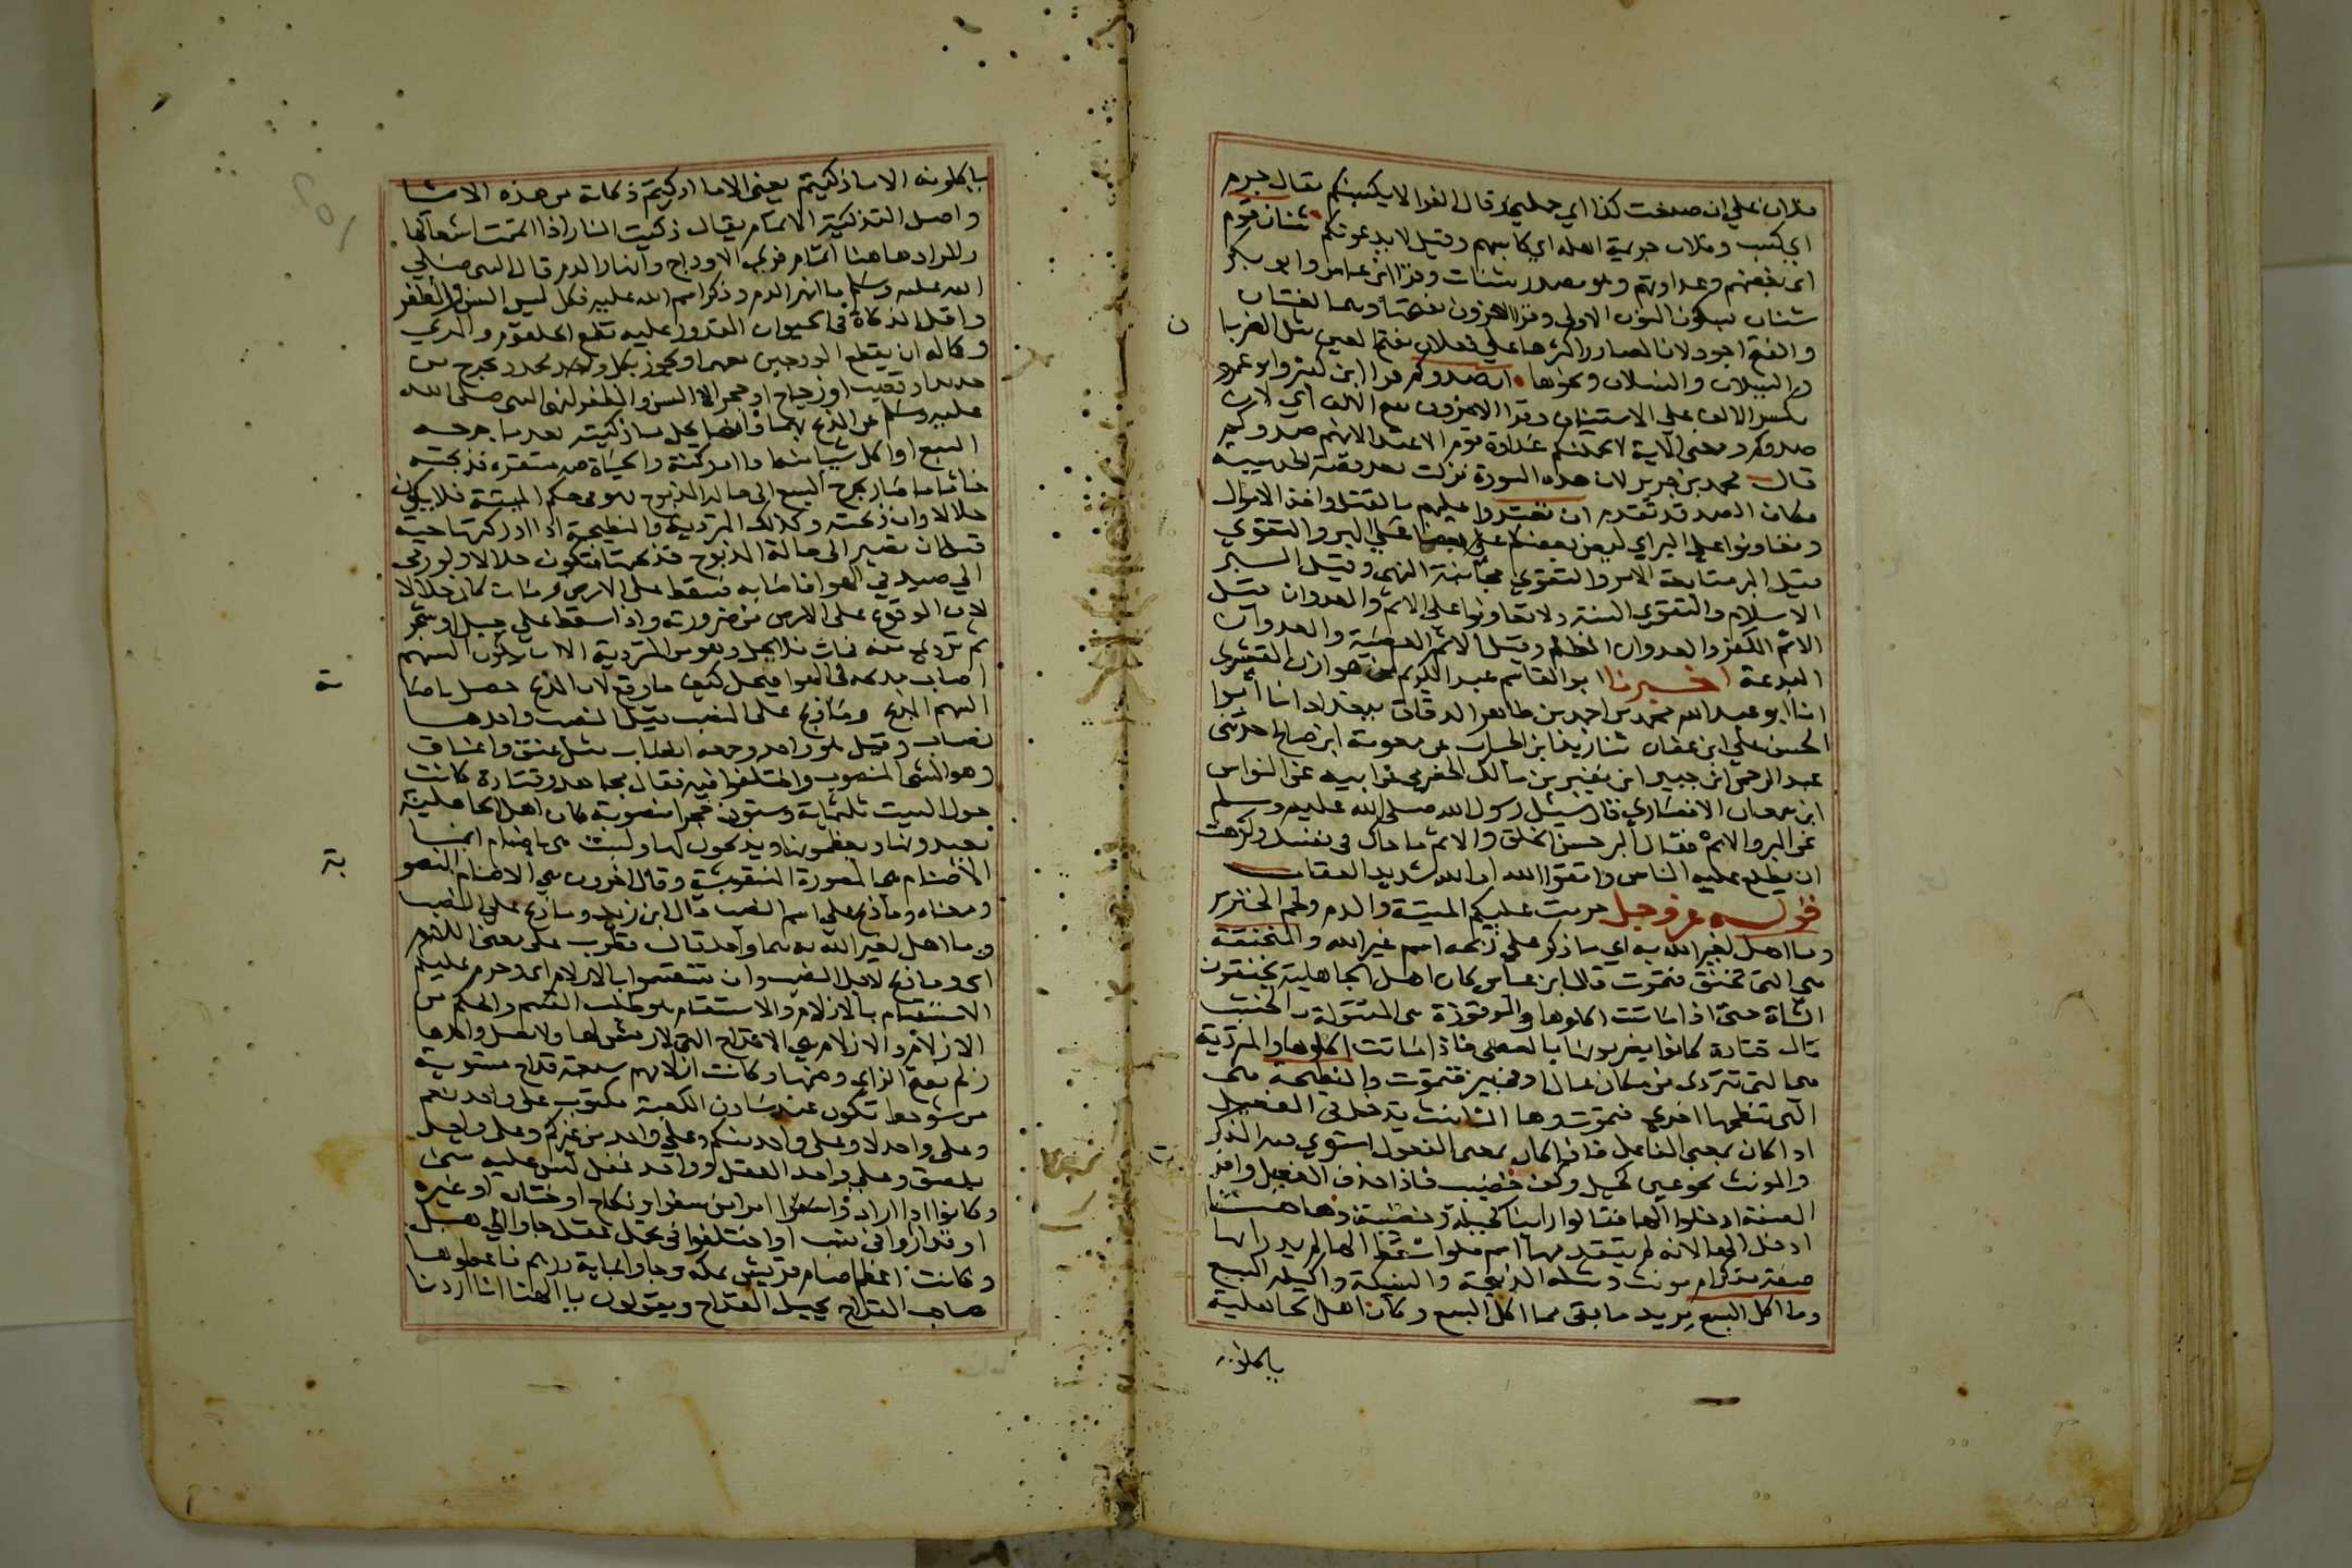 فلان علي ان صنعت كذا اي حملني وقال الفرا لا يكسبنكم يقال جرم
اي كسب وفلان جريمة اهله اي كاسبهم وقيل لا يدعونكم شنان قوم
اي بغضهم وعداوتهم وهو مصدر شنات وقرا ابن عامر وابو بكر
شنان بسكون النون الاولى وقرا الاخرون بفتحها وهما لغتان
والفتح اجود لان المصادر اكثرها على فعلان بفتح العين مثل الضربا
ن
والسيلان والنسلان ونحوها ان صدوكم قرا ابن كثير وابو عمرو
بكسر الالف على الاستيناف وقرا الاخرون بفتح الالف اي لان
صدوكم ومعنى الاية لا يحملنكم عداوة قوم على الاعتدا لانهم صدوكم
قال محمد بن جرير لان هذه السورة نزلت بعد قصة الحديبية
فكان الصد قد تقدم ان تعتدوا عليهم بالقتل واخذ الاموال
وتعاونوا على البر اي ليعن بعضكم بعضا على البر والتقوي
قيل البر متابعة الامر والتقوي مجانبة النهي وقيل البر
الاسلام والتقوي السنة ولا تعاونوا على الاثم والعدوان قيل
الاثم الكفر والعدوان الظلم وقيل الاثم المعصية والعدوان
البدعة اخبرنا ابو القاسم عبد الكريم بن هوازن القشيري
انا ابو عبد الله محمد بن احمد بن طاهر الدقاق ببغداد انا ابوا
الحسن علي ابن عفان ثنا زيد بن الحباب عن معوية ابن صالح حدثني
عبد الرحمن ابن جبير ابن نفير بن مالك الحضرمي عن ابيه عن النواس
ابن سمعان الانصاري قال سئل رسول الله صلى الله عليه وسلم
عن البر والاثم فقال البر حسن الخلق والاثم ما حاك في نفسك وكرهت
ان يطلع عليه الناس واتقوا الله ان الله شديد العقاب
قوله عز وجل حرمت عليكم الميتة والدم ولحم الخنزير
وما اهل لغير الله به اي ما ذكر على ذبحه اسم غير الله والمنخنقة
هي التي تختنق فتموت قال ابن عباس كان اهل الجاهلية يخنقون
الشاة حتى اذا ماتت اكلوها والموقوذة هي المقتولة بالخشب
قال قتادة كانوا يضربونها بالعصى فاذا ماتت اكلوها والمتردية
هي التي تتردى من مكان عال او في بير فتموت والنطيحة هي
التي تنطحها اخرى فتموت وها التانيث تدخل في الفعيل
اذا كان بمعنى الفاعل فاذا كان بمعنى المفعول استوي فيه المذكر
ت
والمونث نحو عين كحيل وكف خضيب فاذا حذفت الفعيل وافر
الصفة ادخلوا الها فقالوا راينا كحيلة وخضيبة وها هنا
ادخل الها لانه لم يتقدمها اسم فلو اسقط الها لم يدر انها
صفة مذكر ام مونث ومثله الذبيحة والنسيكة واكيلة السبع
وما اكل السبع يريد ما بقى مما اكل السبع وكان اهل الجاهلية
ياكلونه
ياكلونه الا ما ذكيتم يعني الا ما ادركتم ذكاته من هذه الاشيا
واصل التذكية الاتمام يقال ذكيت النار اذا اتممت اشعالها
والمراد هاهنا اتمام فري الاوداج وانهار الدم قال النبي صلى
الله عليه وسلم ما انهر الدم وذكر اسم الله عليه فكل ليس السن والظفر
واقل الذكاة في الحيوان المقدور عليه قطع الحلقوم والمري
وكماله ان يقطع الودجين معهما ويجوز بكل محدد يجرح من
حديد او قصب او زجاج او حجر الا السن والظفر لنهي النبي صلى الله
عليه وسلم عن الذبح بهما وانما يحل ما ذكيته بعد ما جرحه
السبع او اكل شيا منها اذا ادركته والحياة فيه مستقرة فذبحته
فاما ما صار بجرح السبع الى حالة المذبوح فهو في حكم الميتة فلا يكون
حلالا وان ذبحته وكذلك المتردية والنطيحة اذا ادركتها حية
قبل ان تصير الى حالة المذبوح فذبحتها تكون حلالا ولو رمى
الي صيد في الهوا فاصابه فسقط على الارض ومات كان حلالا
لان الوقوع على الارض من ضرورته واذا سقط على جبل او شجر
ثم تردي منه فمات فلا يحل وهو من المتردية الا ان يكون السهم
ة
اصاب مذبحه في الهوا فيحل كيف ما وقع لان الذبح حصل باصابة
السهم المذبح وما ذبح على النصب قيل النصب واحدها
نصاب وقيل هو واحد وجمعه انصاب مثل عنق واعناق
وهو الشي المنصوب واختلفوا فيه فقال مجاهد وقتادة كانت
حول البيت ثلثماية وستون حجرا منصوبة كان اهل الجاهلية
يعبدونها ويعظمونها ويذبحون لها وليست هي باصنام انما
الاصنام هي المصورة المنقوشة وقال اخرون هي الاصنام المنصو
بة
ومعناه وما ذبح على اسم النصب قال ابن زيد وما ذبح على النصب
وما اهل لغير الله به هما واحد قال قطرب على بمعنى اللام
اي وما ذبح لاجل النصب وان تستقسموا بالازلام اي وحرم عليكم
الاستقسام بالازلام والاستقسام هو طلب القسم والحكم من
الازلام والازلام هي الاقداح التي لا ريش لها ولا نصل واحدها
زلم بفتح الزاي وضمها وكانت ازلامهم سبعة قداح مستوية
من شوحط تكون عند سادن الكعبة مكتوب على واحد نعم
وعلى واحد لا وعلى واحد منكم وعلى واحد من غيركم وعلى واحد
ملصق وعلى واحد العقل وواحد غفل ليس عليه شي
وكانوا اذا ارادوا امرا من سفر او نكاح او ختان او غيره
او تداروا في نسب او اختلفوا في تحمل عقل جاوا الى هبل
وكانت اعظم اصنام قريش بمكة وجاوا بماية درهم فاعطوها
صاحب القداح يجيل القداح ويقولون يا الهنا انا اردنا